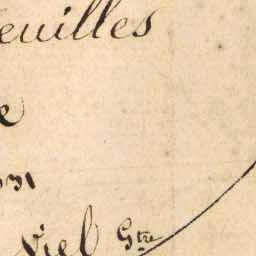 euilles
e
Viel Gtre